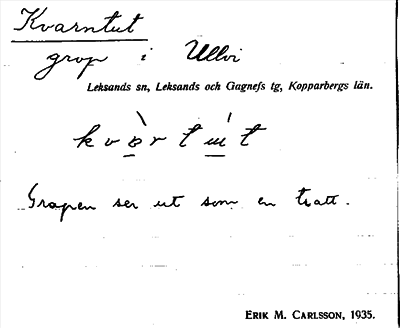 Kvarntut
grop i Ullvi
Leksands sn, Leksands och Gagnefs tg, Kopparbergs län.
kvàrtút
Gropen ser ut som en tratt.
ERIK M. CARLSSON, 1935.